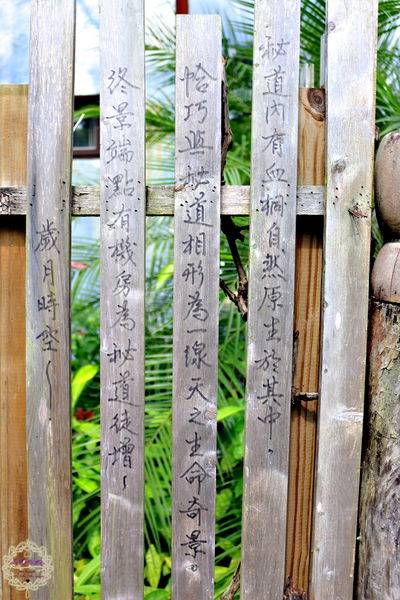 秘道內有血桐自然原生於其中。
恰巧與秘道相形為一線天之生命奇景。
終景端點有機房為秘道徒增~
歲月時空~